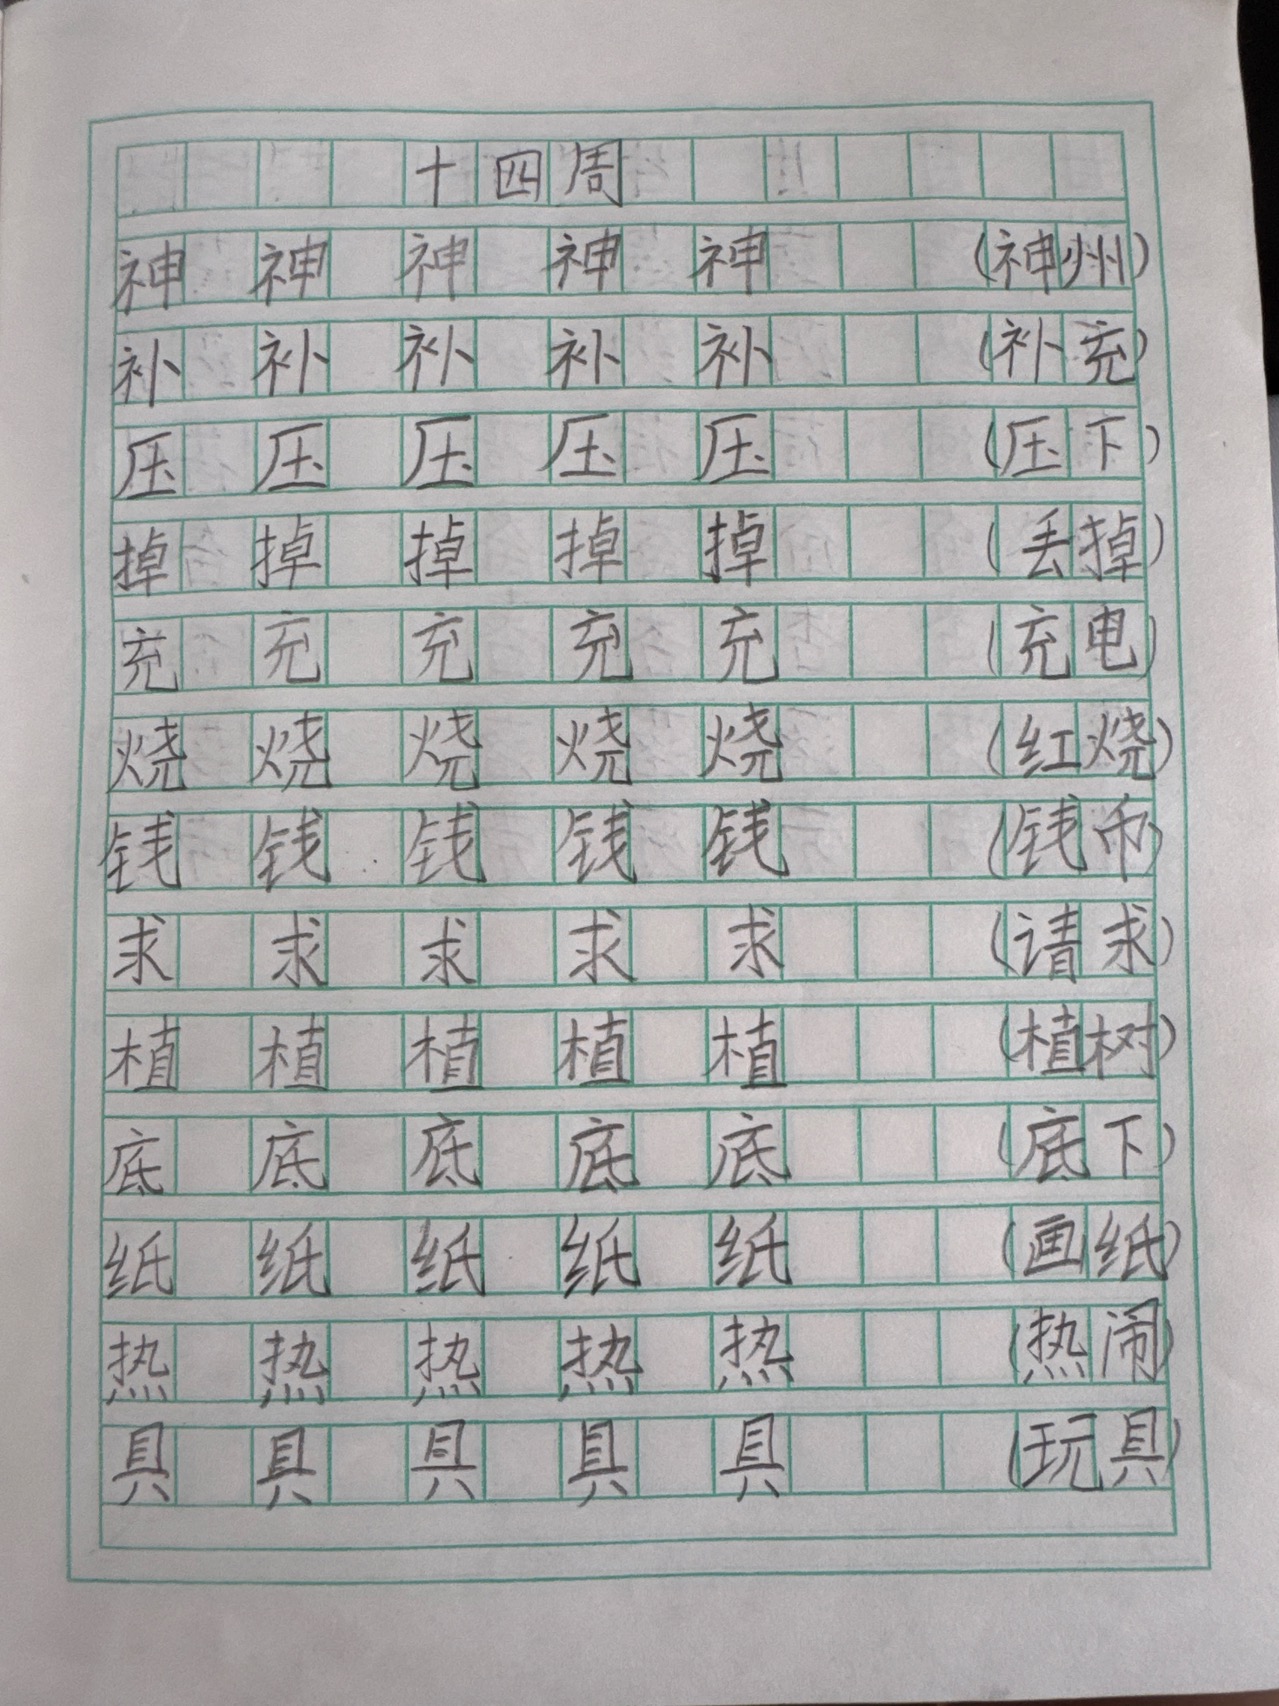 十四周
神 神 神 神 神 (神州)
补 补 补 补 补 (补充)
压 压 压 压 压 (压下)
掉 掉 掉 掉 掉 (丢掉)
充 充 充 充 充 (充电)
烧 烧 烧 烧 烧 (红烧)
钱 钱 钱 钱 钱 (钱币)
求 求 求 求 求 (请求)
植 植 植 植 植 (植树)
底 底 底 底 底 (底下)
纸 纸 纸 纸 纸 (画纸)
热 热 热 热 热 (热闹)
具 具 具 具 具 (玩具)